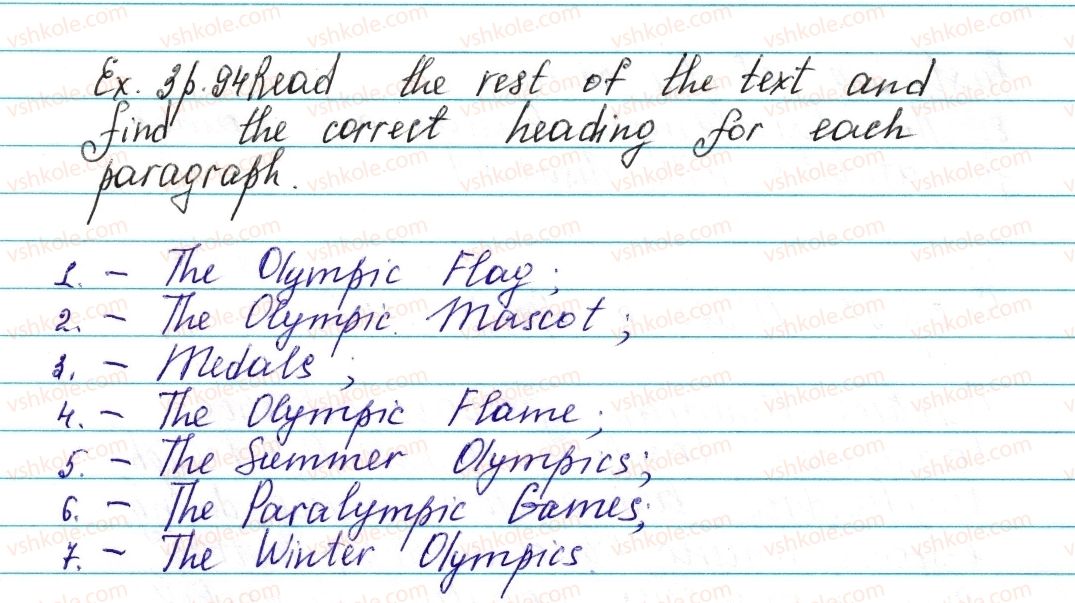 Ex. 3 p. 94 Read the rest of the text and
find the correct heading for each
paragraph.
1. – The Olympic Flag;
2. – The Olympic Mascot;
3. – Medals;
4. – The Olympic Flame;
5. – The Summer Olympics;
6. – The Paralympic Games;
7. – The Winter Olympics.